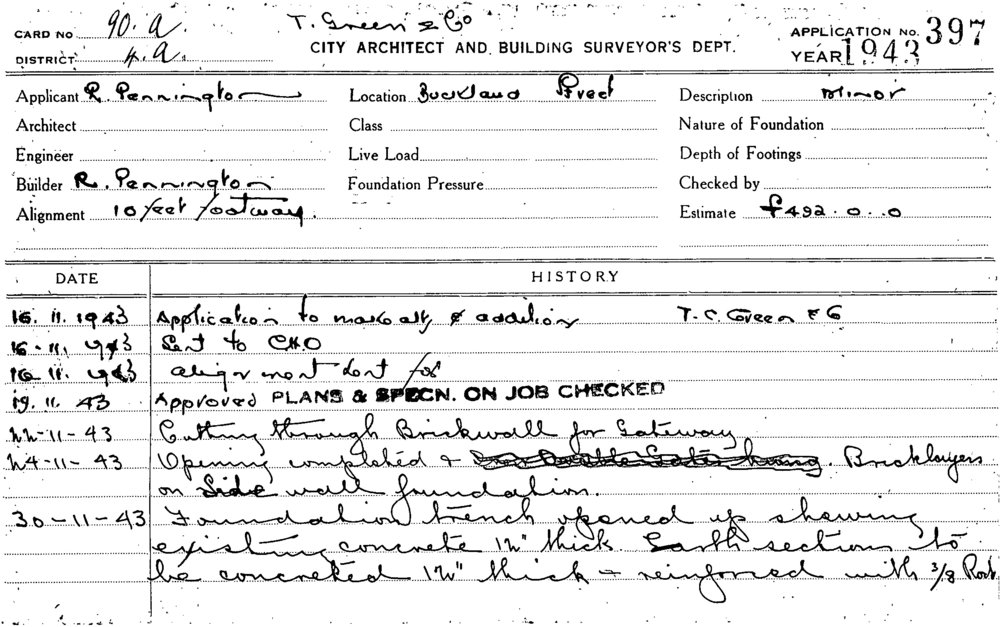 CARD No 90. A
T. Green & Co
CITY ARCHITECT AND BUILDING SURVEYOR'S DEPT.
APPLICATION No. 397
DISTRICT 4. A.
YEAR 1943
Applicant R. Pennington Location Buckland Street Description Minor
Architect Class Nature of Foundation
Engineer Live Load Depth of Footings
Builder R. Pennington Foundation Pressure Checked by
Alignment 10 feet footway. Estimate £492.0.0
DATE HISTORY
16.11.1943 Application to make alt & addition T. C. Green & Co
16.11.1943 Sent to C.H.O
16.11.1943 alignment sent for
19.11.43 Approved PLANS & SPECN. ON JOB CHECKED
22-11-43 Cutting through Brickwall for Gateway
24-11-43 Opening completed & Bricklayers
on Side wall foundation.
30-11-43 Foundation trench opened up showing
existing concrete 12" thick. Earth sections to
be concreted 12" thick & reinforced with 3/8 Rods